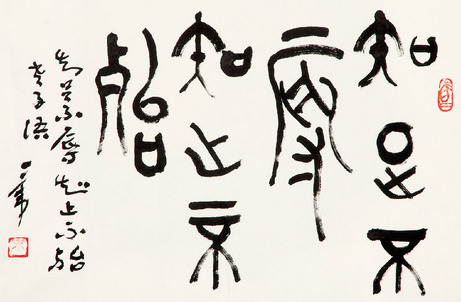 知足不
辱
知止不
殆
知足不辱知止不殆
老子语